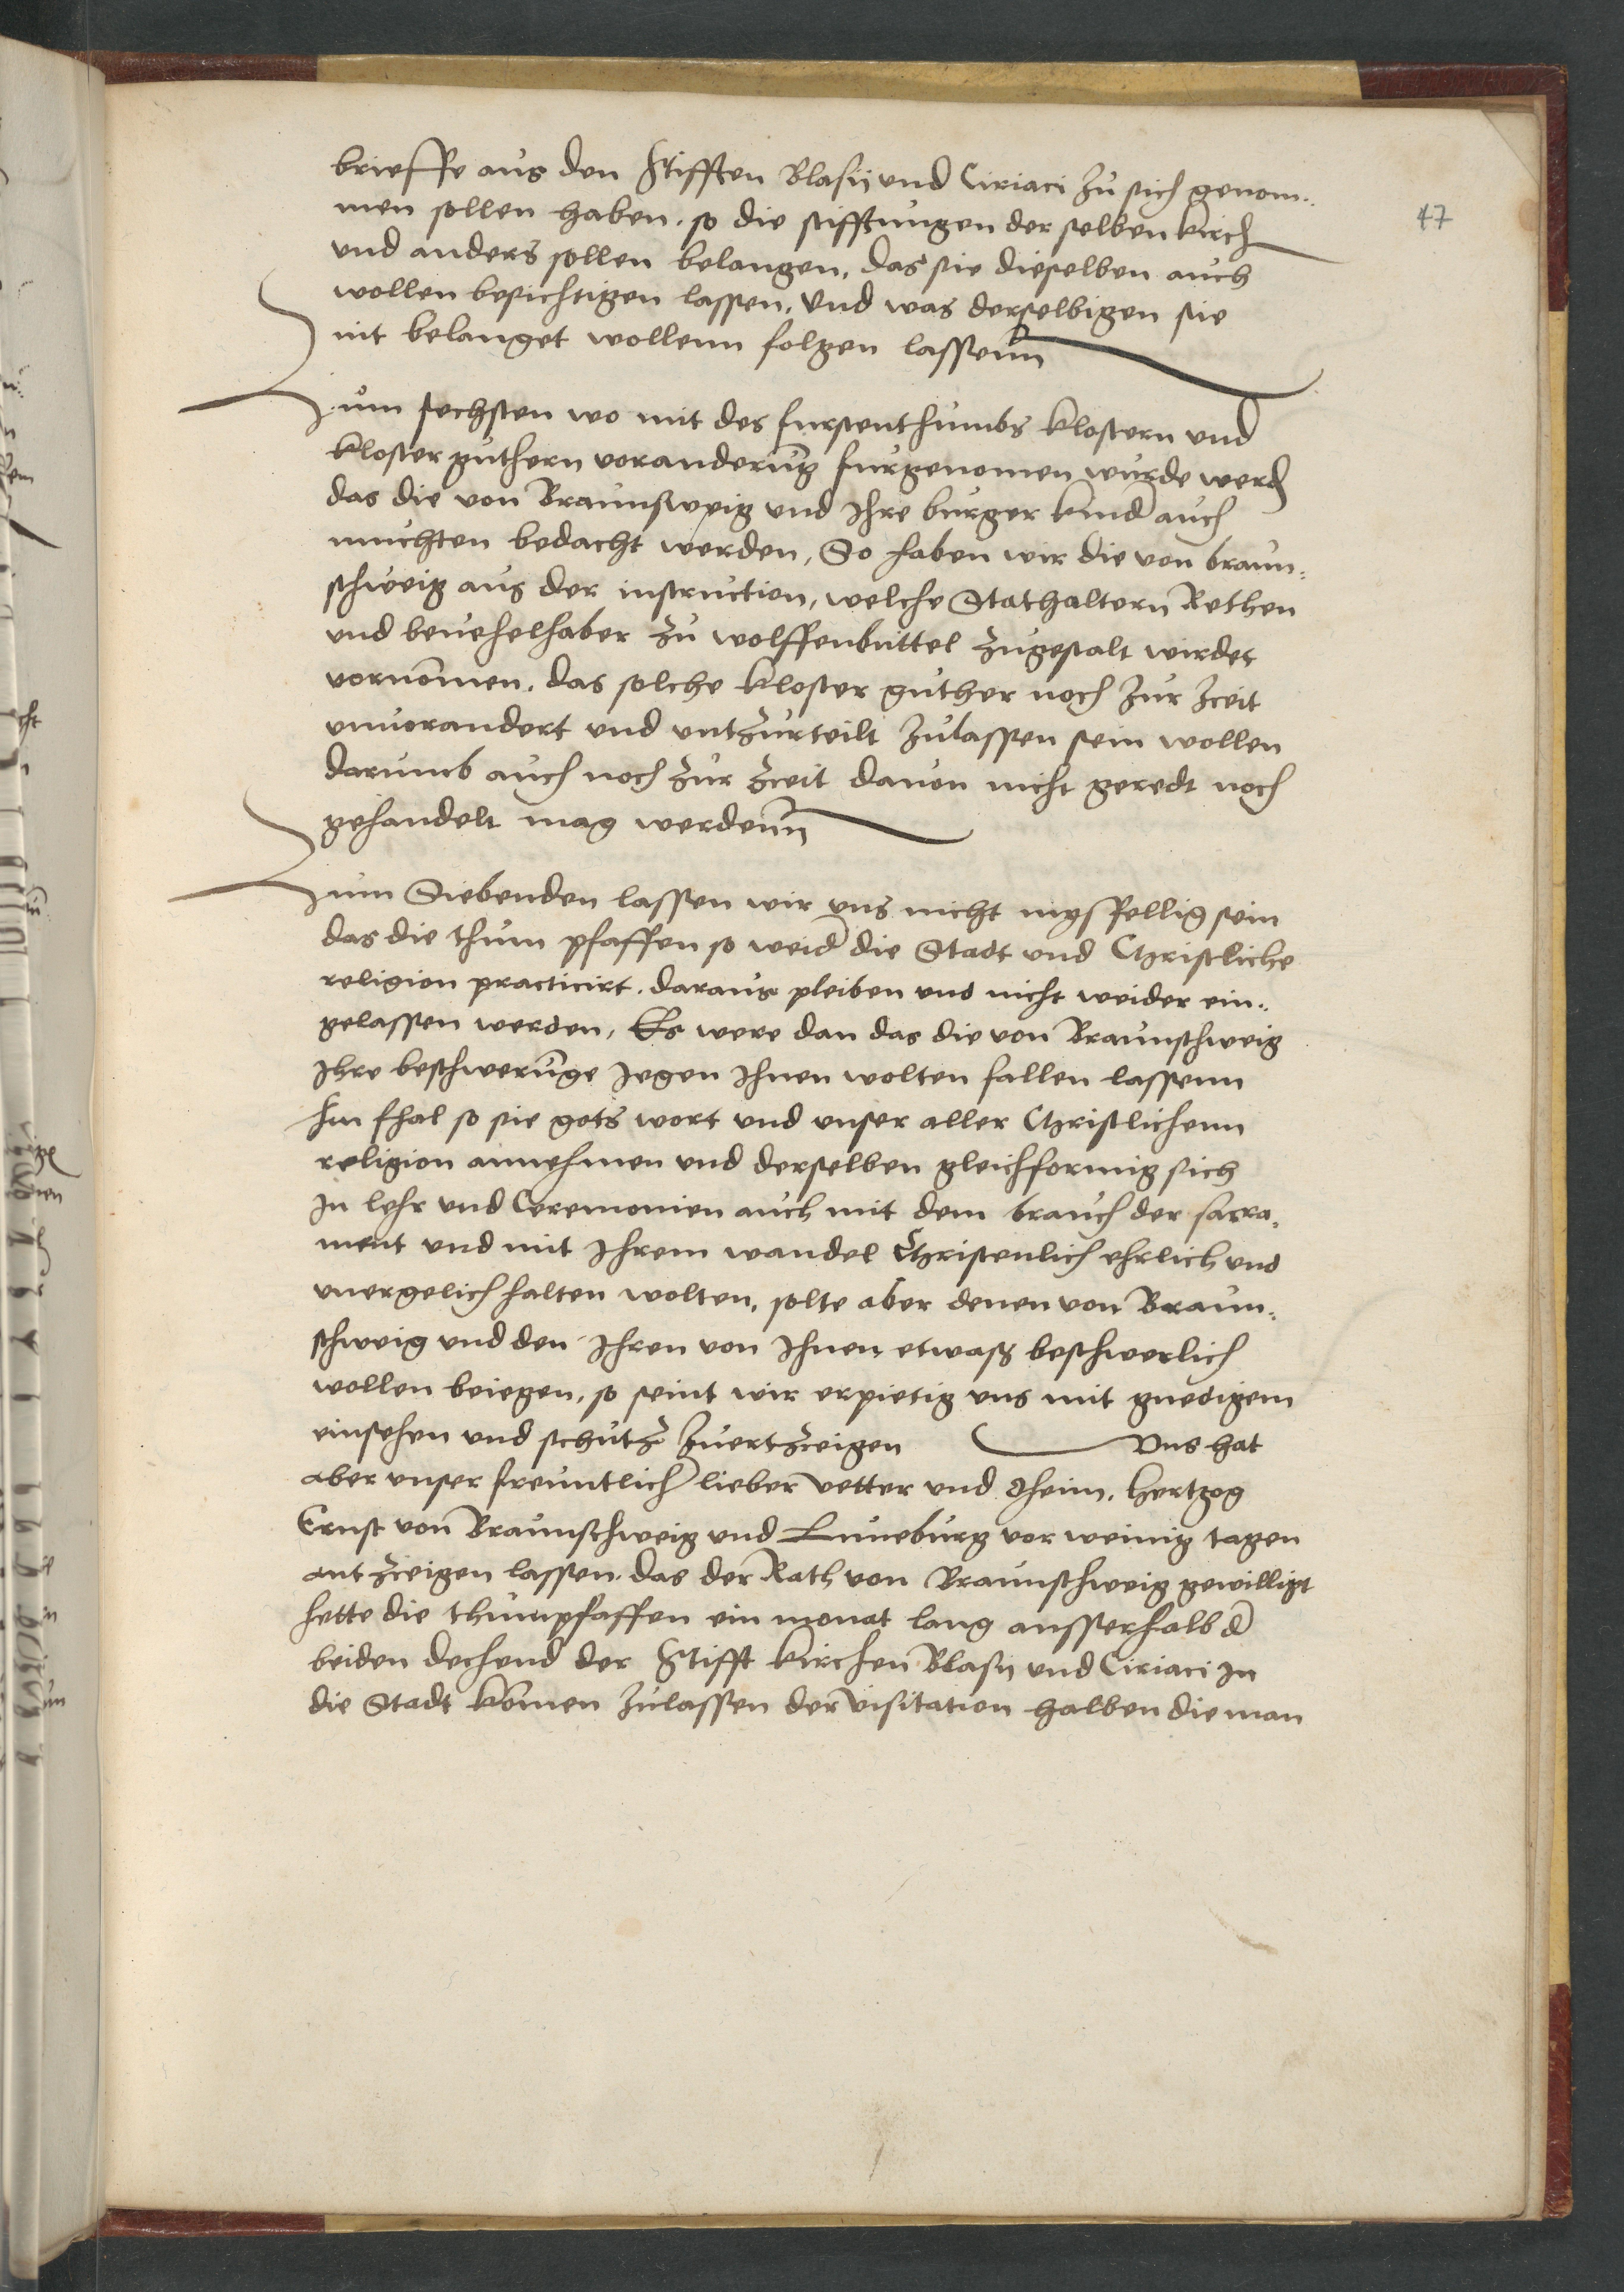 brieffe aus den Stifften Blasii und Ciriaci zu sich genom¬
men sollen haben, so die stifftungen der selben kirch
47
und anders sollen belangen, das sie dieselben auch
wollen besichtigen lassen, und was derselbigen sie
nit belanget wollenn folgen lassenn
Zum sechsten wo mit des furstenthumbs klostern und
kloster guthern voranderung furgenomen wurde werd
das die von Braunsweig und Ihre burger kind auch
muchten bedacht werden, So haben wir die von braun¬
schweig aus der instruction, welche Stathaltern Rethen
und beuehelhaber zu wolffenbuttel zugestalt wirdet
vornommen, das solche kloster guther noch zur zceit
unvorandert und untzurteilt zulassen sein wollen
darumb auch noch zur zceit dauon nicht geredt noch
gehandelt mag werdenn
Zum Siebenden lassen wir uns nicht mysfellig sein
das die thum pfaffen so weid die Stadt und Christliche
religion practicirt, daraus pleiben und nicht weider ein¬
gelassen werden, Es were dan das die von Braunschweig
Ihre beschwerunge jegen Ihnen wolten fallen lassenn
Im fhal so sie gots wort und unser aller Christlichenn
religion annehmen und derselben gleichformig sich
In lehr und Ceremonien auch mit dem brauch der sacra¬
ment und mit Ihrem wandel Christenlich ehrlich und
unergelich halten wolten, solte aber denen von Braun¬
schweig und den Ihren von Ihnen etwass beschwerlich
wollen beiegen, so seint wir erpietig uns mit gnedigem
einsehen und schutz zuertzceigen Uns hat
aber unser freuntlich lieber vetter und Oheim, hertzog
Ernst von Braunschweig und Luneburg vor weinig tagen
antzceigen lassen, das der Rath von Braunschweig gewilligt
hette die thumpfaffen ein monat lang ausserhalb d
beiden dechend der Stifft kirchen Blasii und Ciriaci In
die Stadt kommen zulassen der visitation halben die man